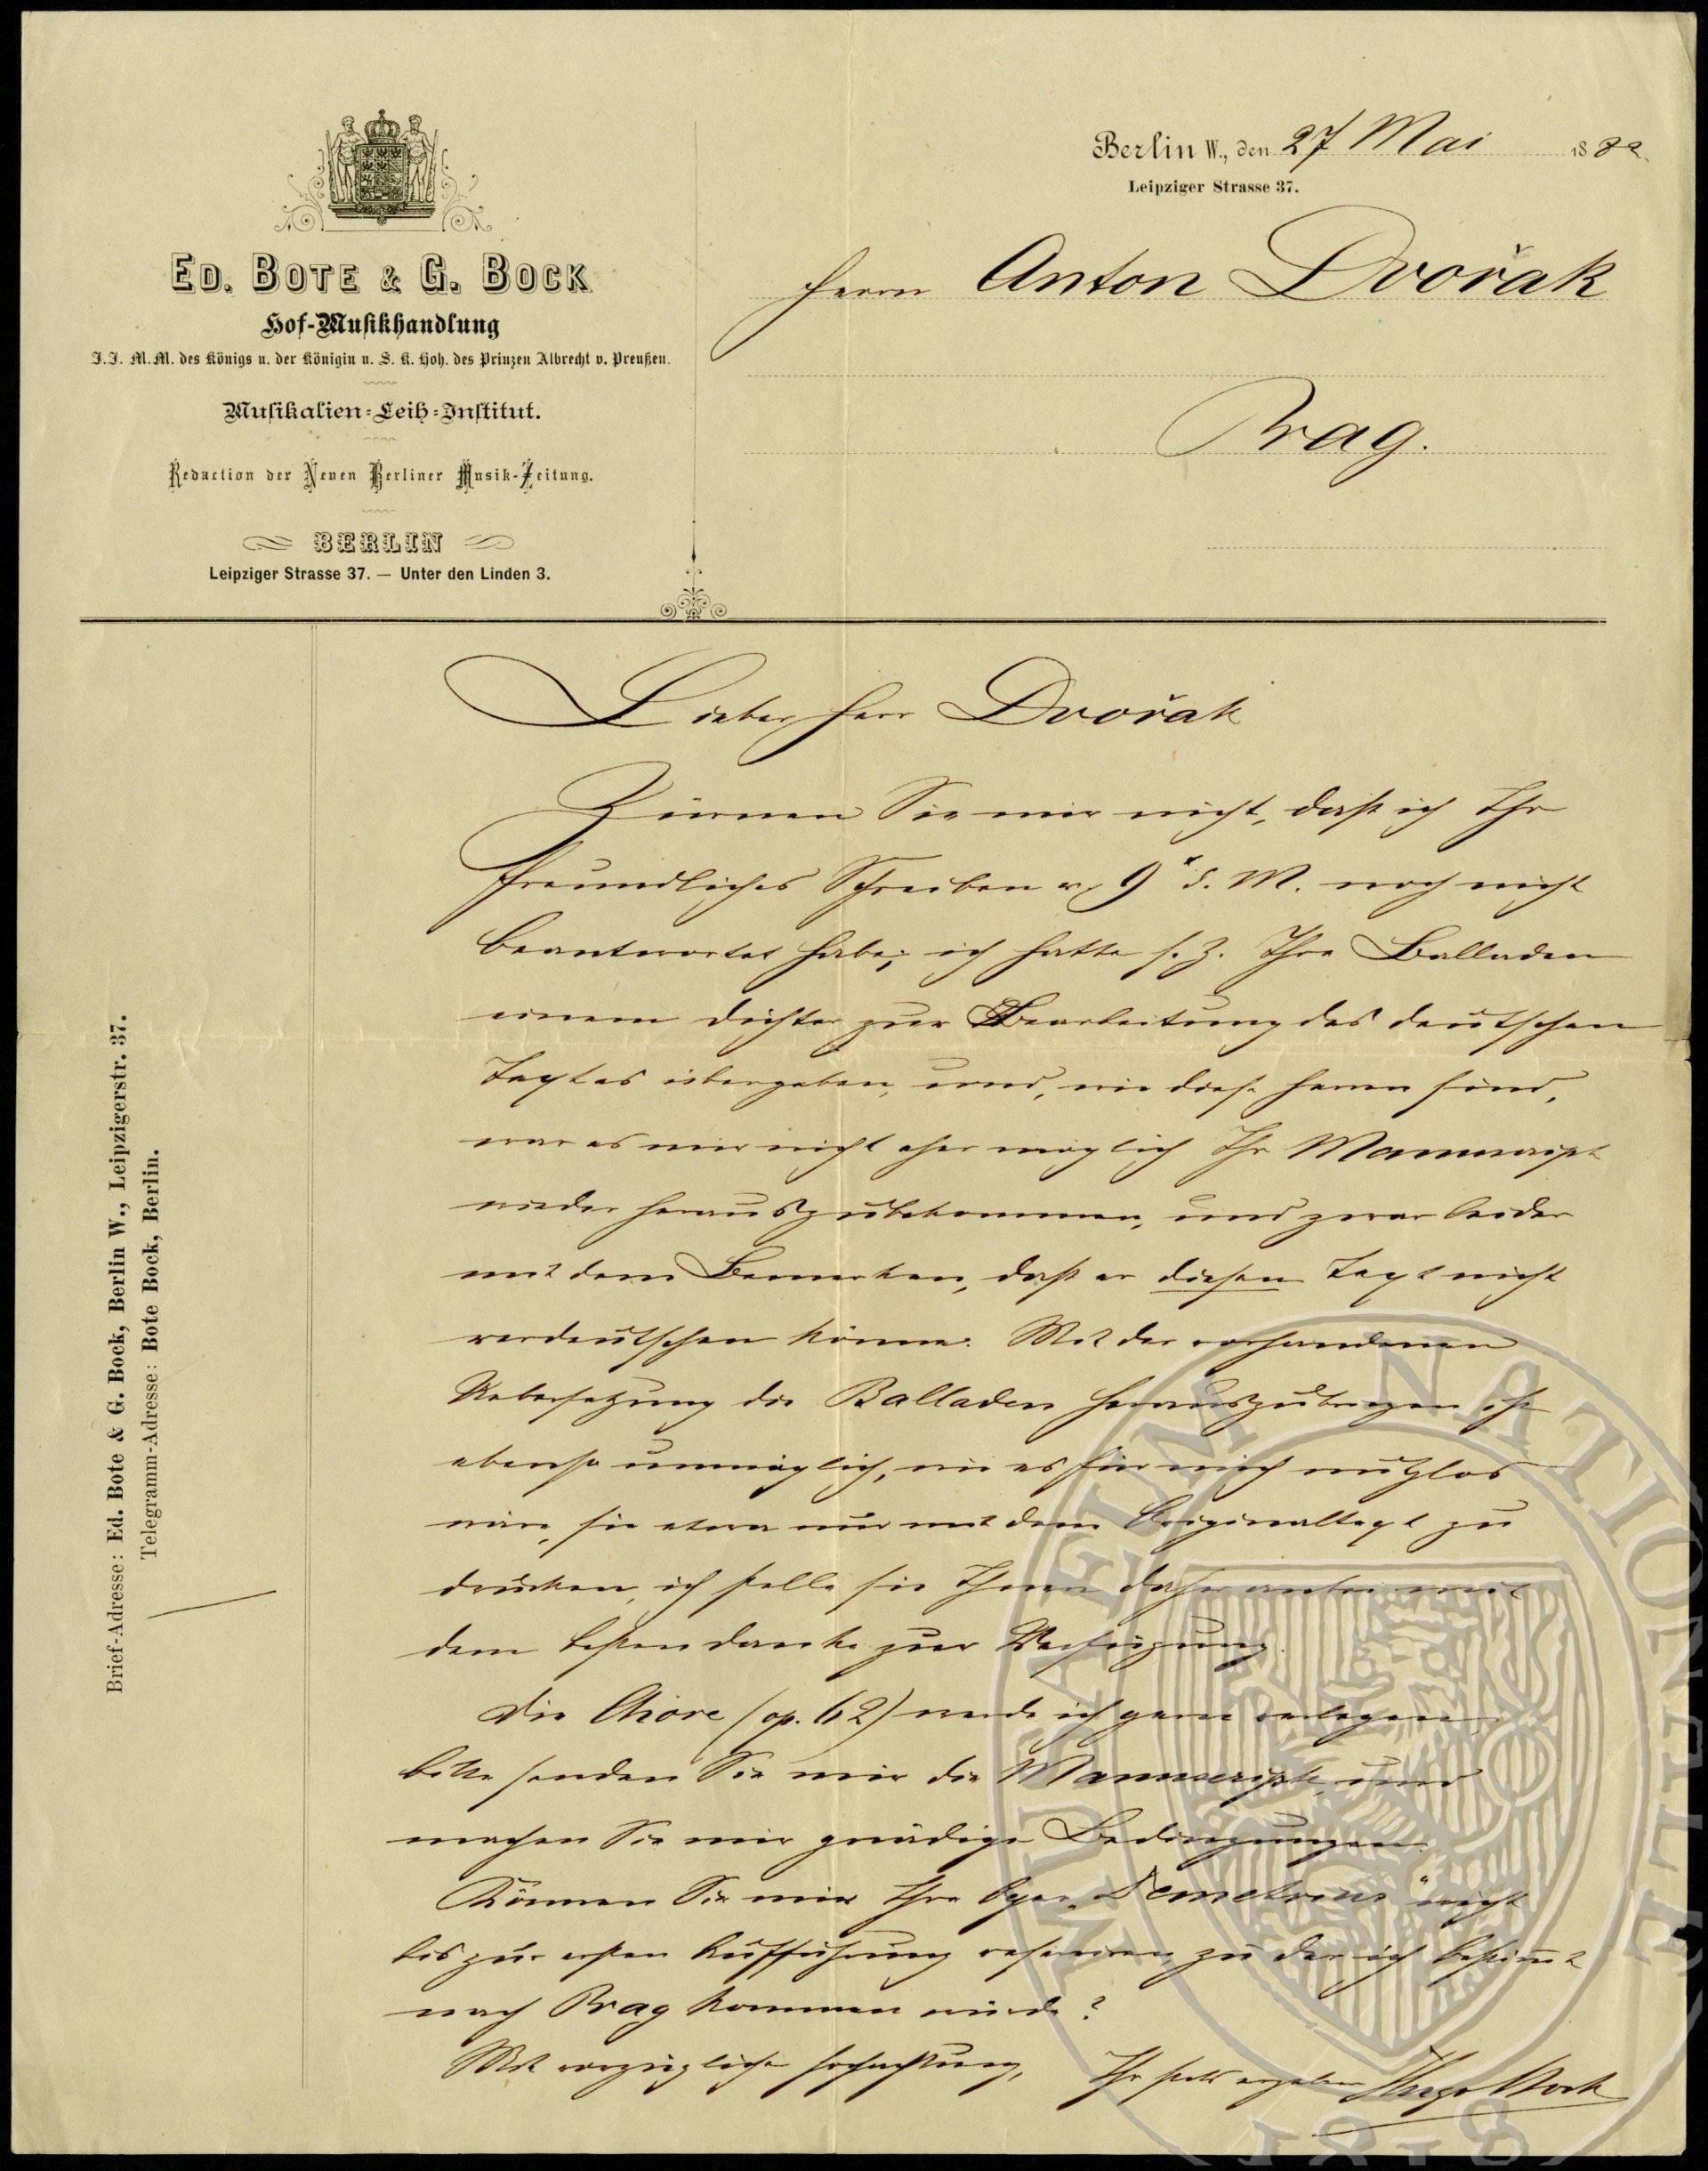 Berlin W., den 27 Mai 1882.
Leipziger Strasse 37.
ED. BOTE & G. BOCK
Hof-Musikhandlung
I.I. M.M. des Königs u. der Königin u. S. K. Hoh. des Prinzen Albrecht v. Preußen.
Musikalien-Leih-Institut.
Redaction der Neuen Berliner Musik-Zeitung.
BERLIN
Leipziger Strasse 37. — Unter den Linden 3.
Herrn Anton Dvořak
Prag.
Brief-Adresse: Ed. Bote & G. Bock, Berlin W., Leipzigerstr. 37.
Telegramm-Adresse: Bote Bock, Berlin.
Lieber Herr Dvořak
Zürnen Sie mir nicht, daß ich Ihr
freundliches Schreiben v. 9t d. M. noch nicht
beantwortet habe; ich hatte s. Z. Ihre Balladen
einem Dichter zur Bearbeitung des deutschen
Textes übergeben, und, wie diese Herren sind,
war es mir nicht eher möglich Ihr Manuscript
wieder herauszubekommen, und zwar leider
mit dem Bemerken, daß er diesen Text nicht
verdeutschen könne. Mit der vorhandenen
Uebersetzung die Balladen herauszubringen ist
ebenso unmöglich, wie es für mich nutzlos
wäre, sie etwa nur mit dem Originaltext zu
drucken, ich stelle sie Ihnen daher anbei mit
dem besten Danke zur Verfügung.
Die Chöre (op. 62) werde ich gerne verlegen,
bitte senden Sie mir die Manuscripte, und
machen Sie mir gnädige Bedingungen.
Können Sie mir Ihre Oper „Demetrius“ nicht
bis zur ersten Aufführung reserviren, zu der ich bestimmt
nach Prag kommen würde?
Mit vorzüglicher Hochachtung, Ihr stets ergebener Hugo Bock
MUSAEUM NATIONALE
1818